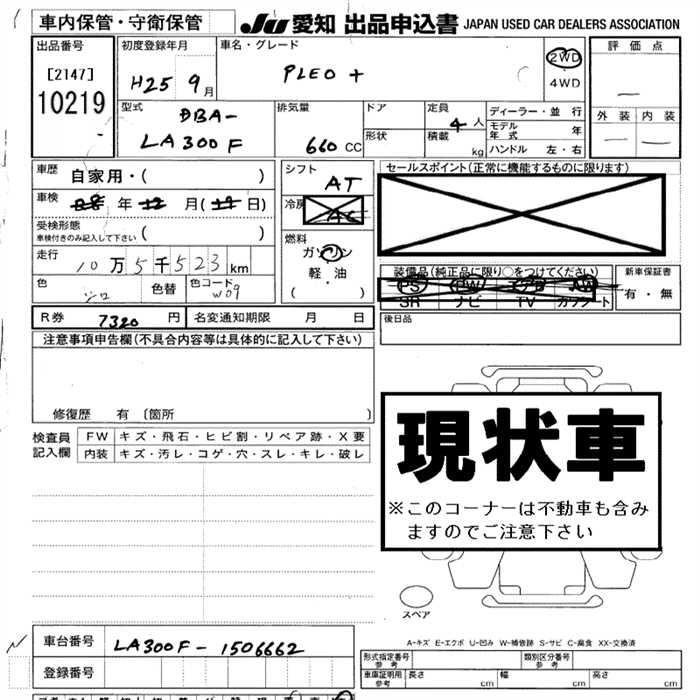 車内保管・守衛保管
JU 愛知 出品申込書 JAPAN USED CAR DEALERS ASSOCIATION
出品番号
[2147]
10219
初度登録年月
H25 9月
車名・グレード
PLEO +
2WD
4WD
評価点
外装 内装
型式
DBA-
LA300F
排気量
660 CC
ドア
形状
定員
4人
積載
kg
ディーラー・並行
モデル年式 年
ハンドル 左・右
車歴
自家用・( )
車検
年 月( 日)
受検形態
車検付きのみ記入して下さい ( )
走行
10万5千523km
色
シロ
色替
色コード
W09
シフト
AT
冷房
AC
燃料
ガソリン
軽・油
( )
セールスポイント(正常に機能するものに限ります)
装備品(純正品に限り○をつけてください)
PS PW エアB AW
SR ナビ TV カワシート
新車保証書
有・無
R券 7320 円
名変通知期限 月 日
後日品
注意事項申告欄(不具合内容等は具体的に記入して下さい)
修復歴 有 〔箇所 〕
検査員
記入欄
FW キズ・飛石・ヒビ割・リペア跡・X要
内装 キズ・汚レ・コゲ・穴・スレ・キレ・破レ
現状車
※このコーナーは不動車も含み
ますのでご注意下さい
スペア
A-キズ E-エクボ U-凹み W-補修跡 S-サビ C-腐食 XX-交換済
車台番号 LA300F-1506662
登録番号
形式指定番号
参考
類別区分番号
参考
車庫証明用
参考
長さ 幅 高さ
cm cm cm